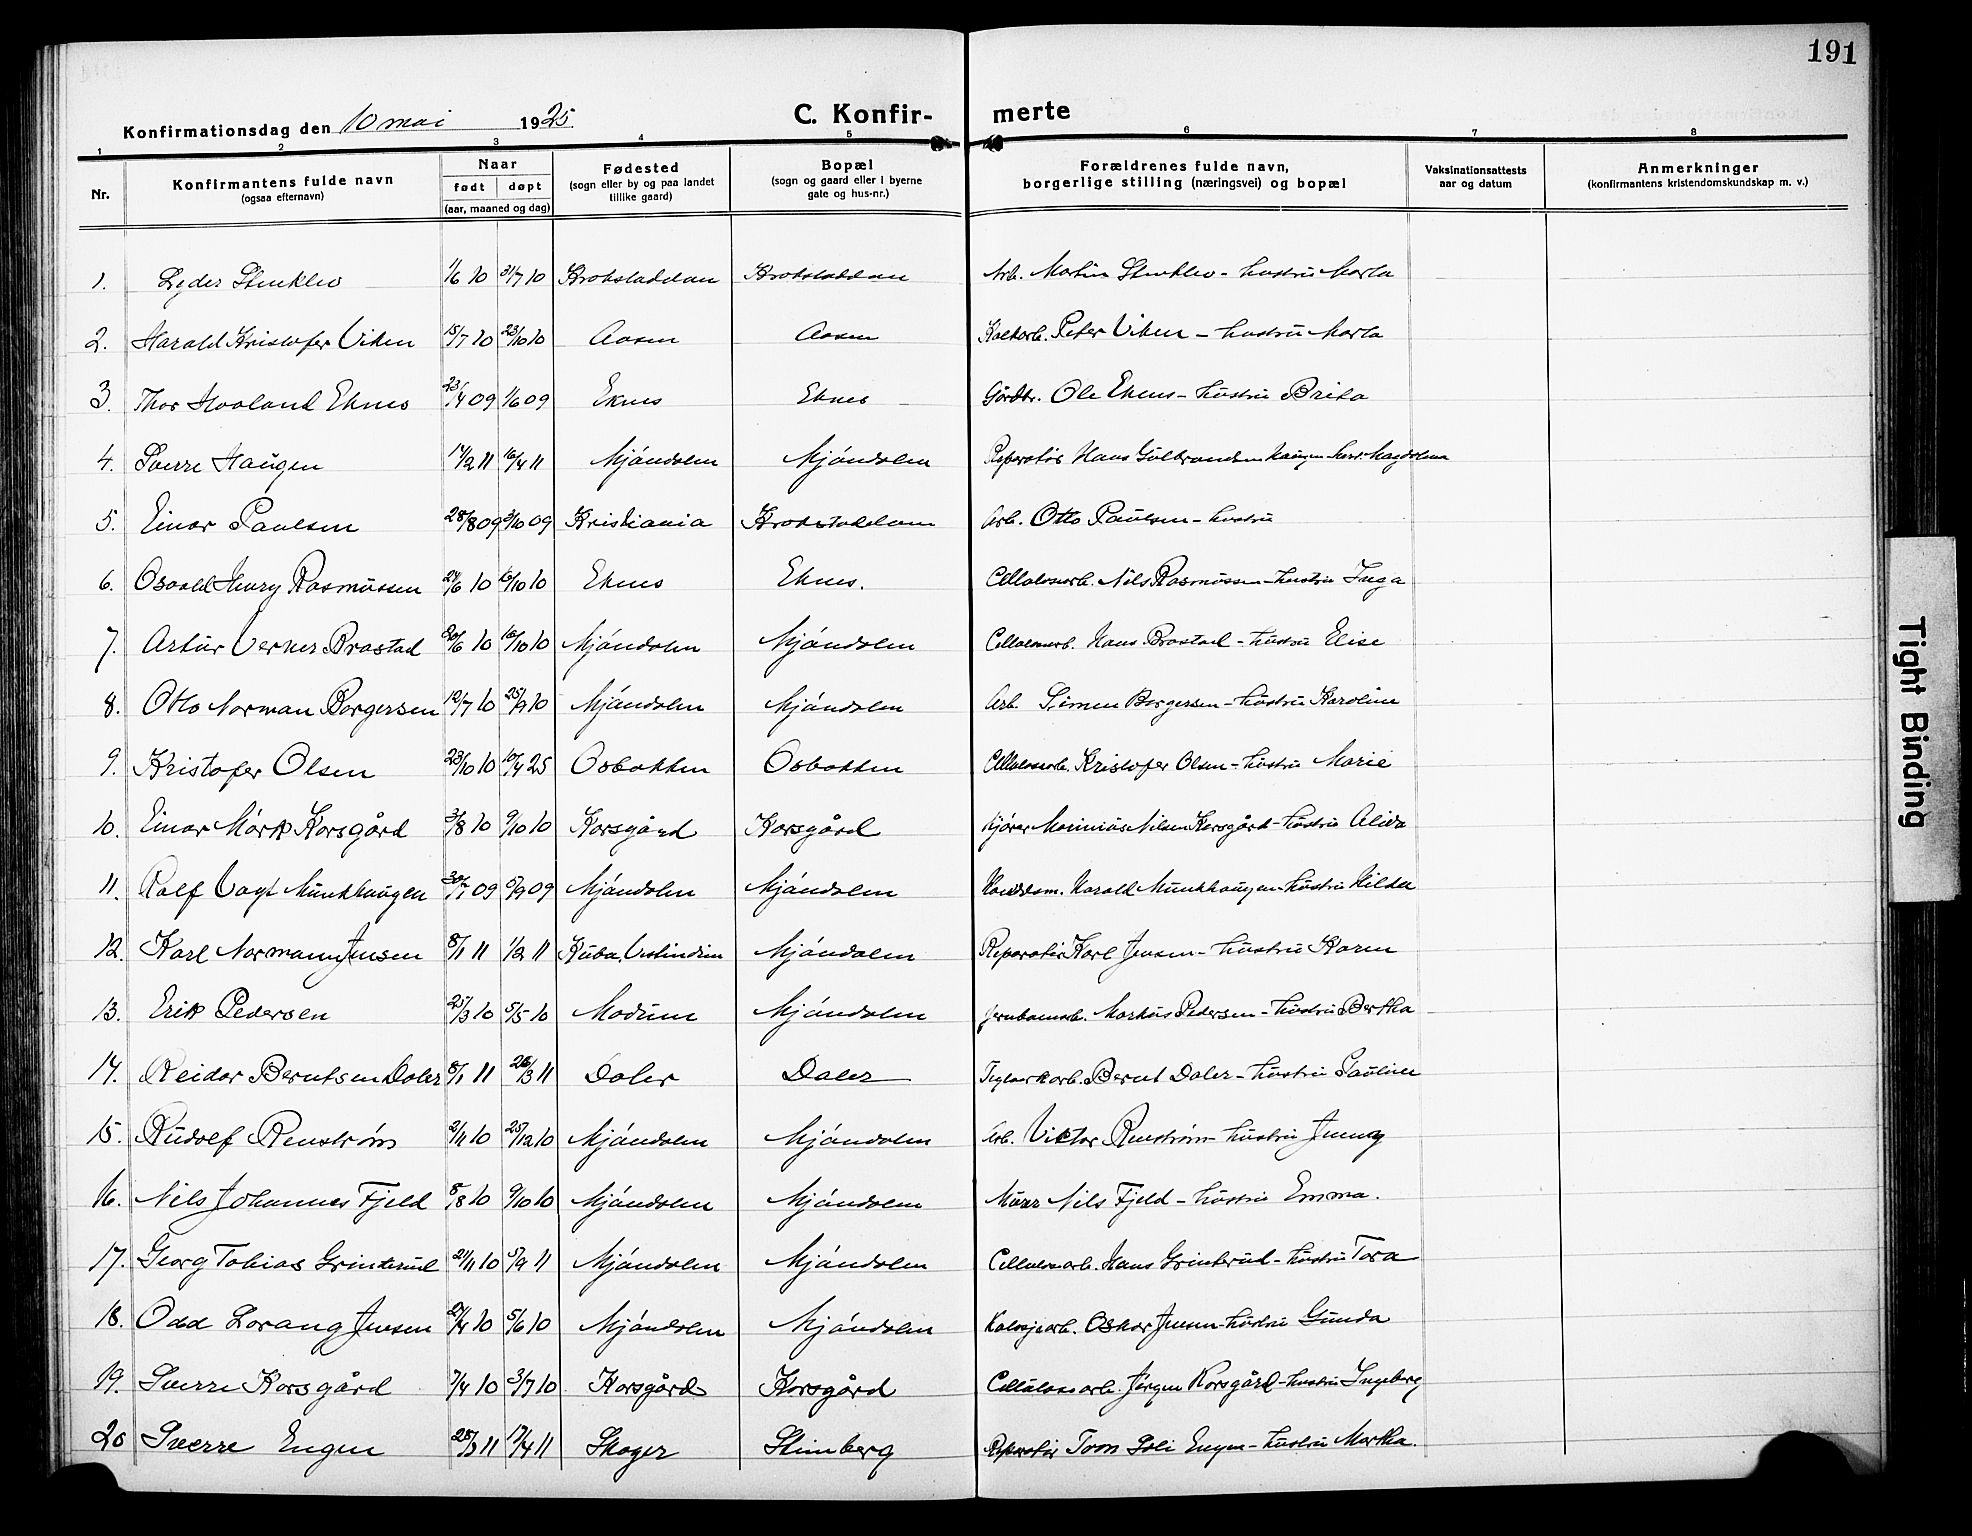 191
Konfirmationsdag den 10 mai 1925
C. Konfir- merte
1 2 3 4 5 6 7 8
Nr.
Konfirmantens fulde navn
(ogsaa efternavn)
Naar
født døpt
(aar, maaned og dag)
Fødested
(sogn eller by og paa landet
tillike gaard)
Bopæl
(sogn og gaard eller i byerne
gate og hus-nr.)
Forældrenes fulde navn,
borgerlige stilling (næringsvei) og bopæl
Vaksinationsattests
aar og datum
Anmerkninger
(konfirmantens kristendomskundskap m. v.)
1. 1/6 10 31/7 10 Krokstaddan Krokstaddan Arb. Martin - hustru Marta
2. Harald Kristofer Viken 15/7 10 23/10 10 Aasen Aasen Peter Viken - hustru Marta
3. Thor Haaland Eknes 23/4 09 1/6 09 Eknes Eknes Gårdbr. Ole Eknes - hustru Brita
4. Sverre Haugen 14/2 11 16/4 11 Mjóndalen Mjóndalen Reparatør Hans Gulbrandsen Haugen - hustr. Magdalena
5. Einar Paulsen 28/8 09 3/10 09 Kristiania Krokstaddan Arb. Otto Paulsen - hustru
6. Osvald Henry Rasmussen 24/6 10 16/10 10 Eknes Eknes. Cellulosearb. Nils Rasmussen - hustru Inga
7. Artur Verner Brastad 20/6 10 16/10 10 Mjóndalen Mjóndalen Cellulosearb. Hans Brastad - hustru Elise
8. Otto Norman Borgersen 12/7 10 25/9 10 Mjóndalen Mjóndalen Arb. Simen Borgersen - hustru Karoline
9. Kristofer Olsen 23/10 10 10/4 25 Osbakken Osbakken Cellulosearb. Kristofer Olsen - hustru Marie
10. Einar Mórk Korsgård 3/8 10 9/10 10 Korsgård Korsgård Kjórer Marinius Nilsen Korsgård - hustru Alida
11. Rolf Vogt Munkhaugen 30/7 09 5/9 09 Mjóndalen Mjóndalen Handelsm. Harald Munkhaugen - hustru Hilda
12. Karl Normann Jensen 8/1 11 1/2 11 Kuba, Vestindien Mjóndalen Reparatør Karl Jensen - hustru Karen
13. Erik Pedersen 25/3 10 5/5 10 Modum Mjóndalen Jernbanearb. Markus Pedersen - hustru Bertha
14. Reidar Berntsen Daler 8/1 11 26/3 11 Daler Daler Teglverkarb. Bernt Daler - hustru Pauline
15. Rudolf Renstróm 2/11 10 25/12 10 Mjóndalen Mjóndalen Arb. Viktor Renstróm - hustru Jenny
16. Nils Johannes Fjeld 8/8 10 9/10 10 Mjóndalen Mjóndalen Murer Nils Fjeld - hustru Emma.
17. Georg Tobias Grinterud 21/11 10 5/9 11 Mjóndalen Mjóndalen Cellulosearb. Hans Grinterud - hustru Tora
18. Odd Lorang Jensen 27/4 10 5/6 10 Mjóndalen Mjóndalen Oskar Jensen - hustru Gunda
19. Sverre Korsgård 7/4 10 3/7 10 Korsgård Korsgård Cellulosearb. Jórgen Korsgård - hustru Ingeborg
20 Sverre Engen 28/2 11 17/4 11 Skoger Stenberg Reparatør Engen - hustru Martha.
Tight Binding